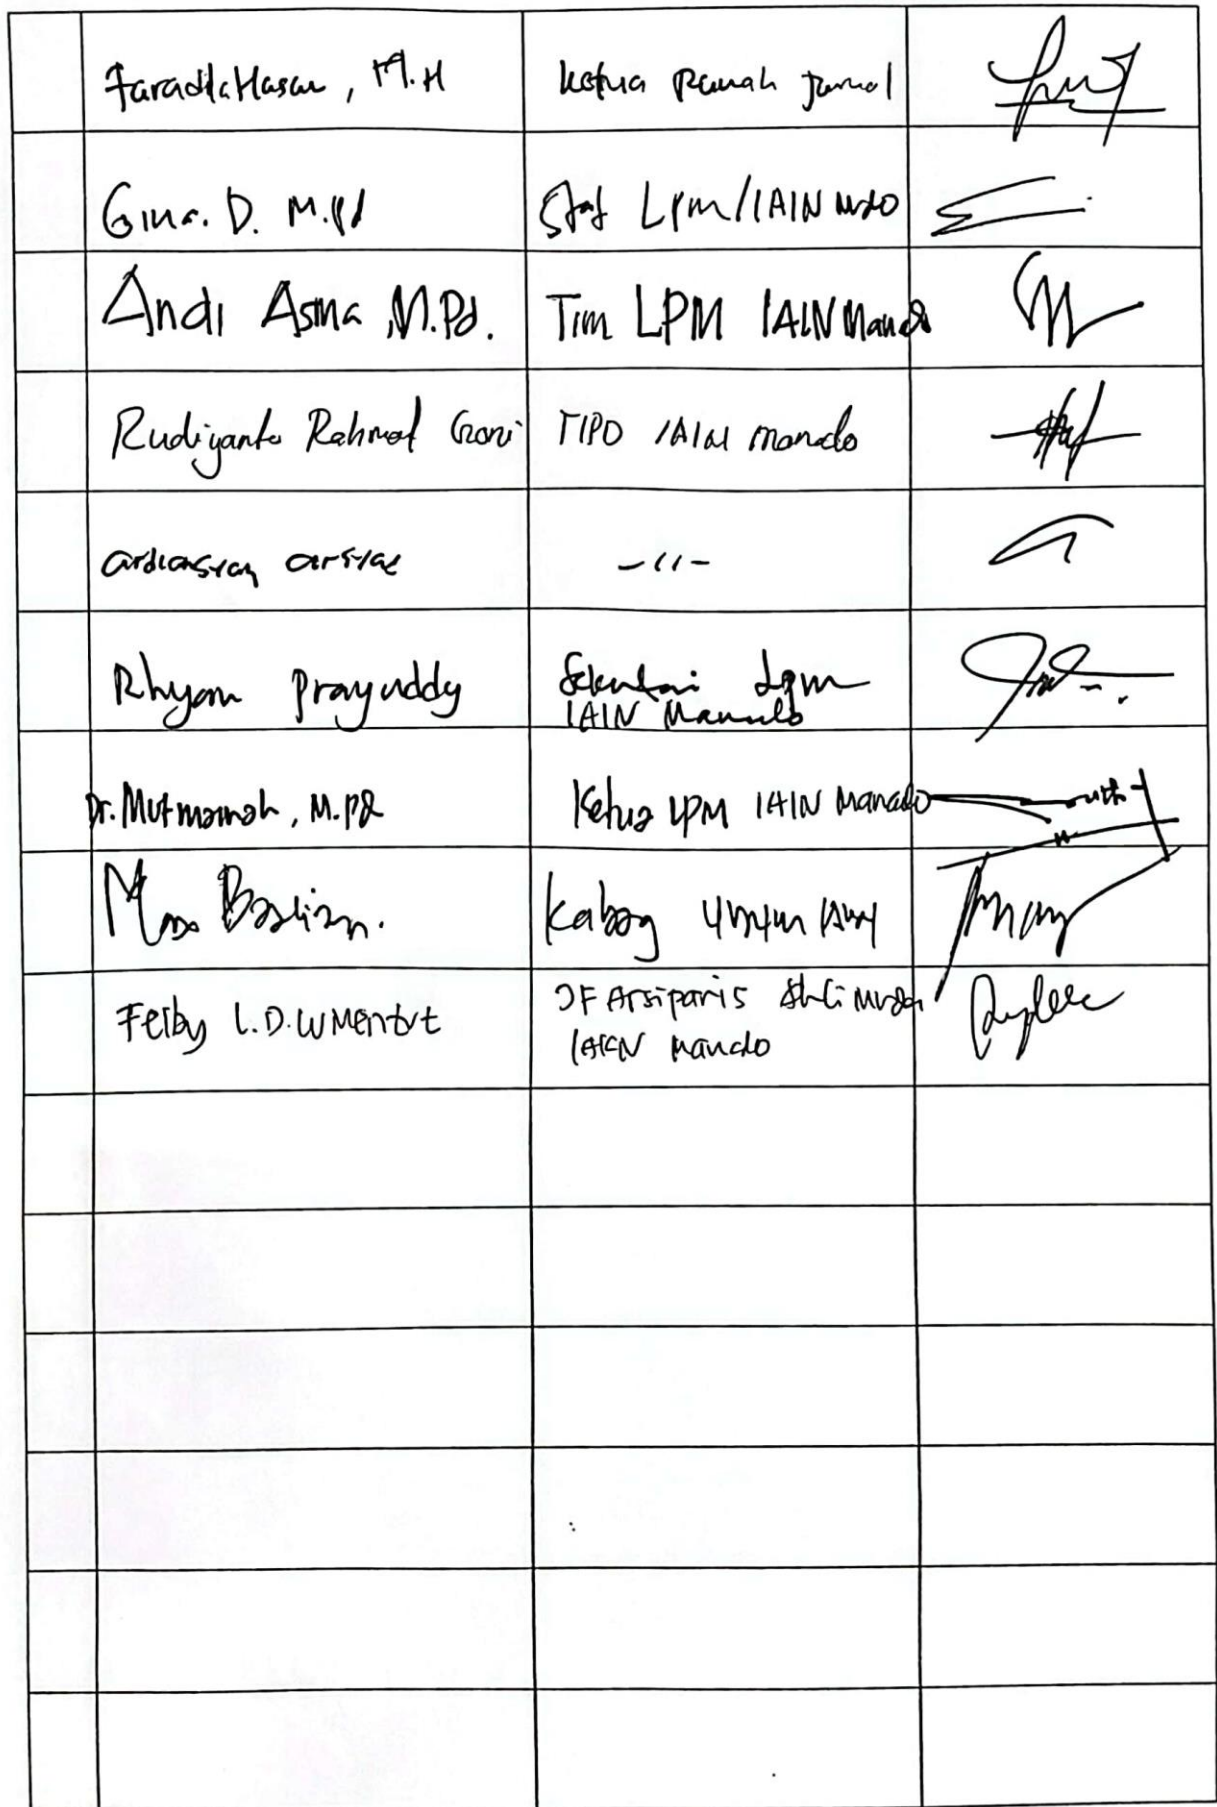 Faradila Hasan, M.H Ketua Rumah Jurnal
Gina. D. M.Pd Staf LPM/IAIN Mdo
Andi Asma, M.Pd. Tim LPM IAIN Manado
Rudiyanto Rahmat Goni TIPD IAIN Manado
ardiansyah -11-
Rhyan Prayuddy Sekretaris Lpm
IAIN Manado
Dr. Mutmainah, M.Pd Ketua LPM IAIN Manado
Bastian. Kabag Umum IAIN
Feiby L.D. Wmentut JF Arsiparis Ahli Muda
IAIN Manado